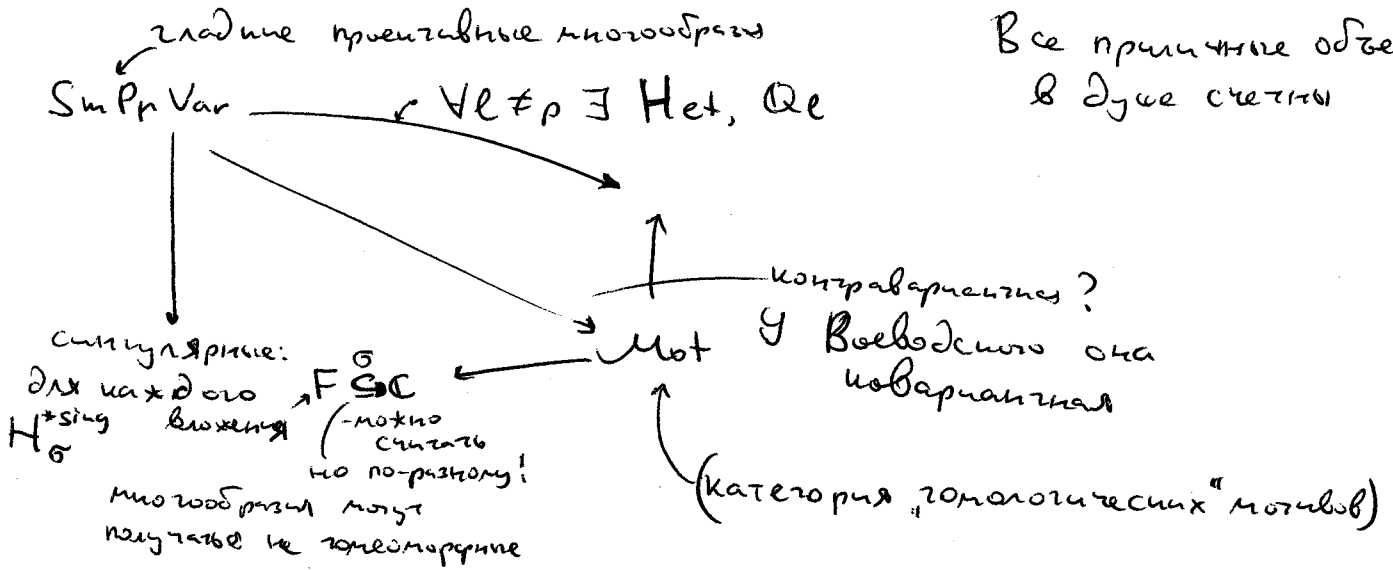 гладкие проективные многообразия
Все приличные объе
в душе счетны
SmPrVar
∀l ≠ p ∃ Het, Ql
контравариантная?
Mot
У Воеводского она
ковариантная
сингулярные:
для каждого
вложения
H*sing σ
F ⊂ C
σ
-можно
считать
но по-разному!
многообразия могут
получаться не гомеоморфные
(категория „гомологических“ мотивов)